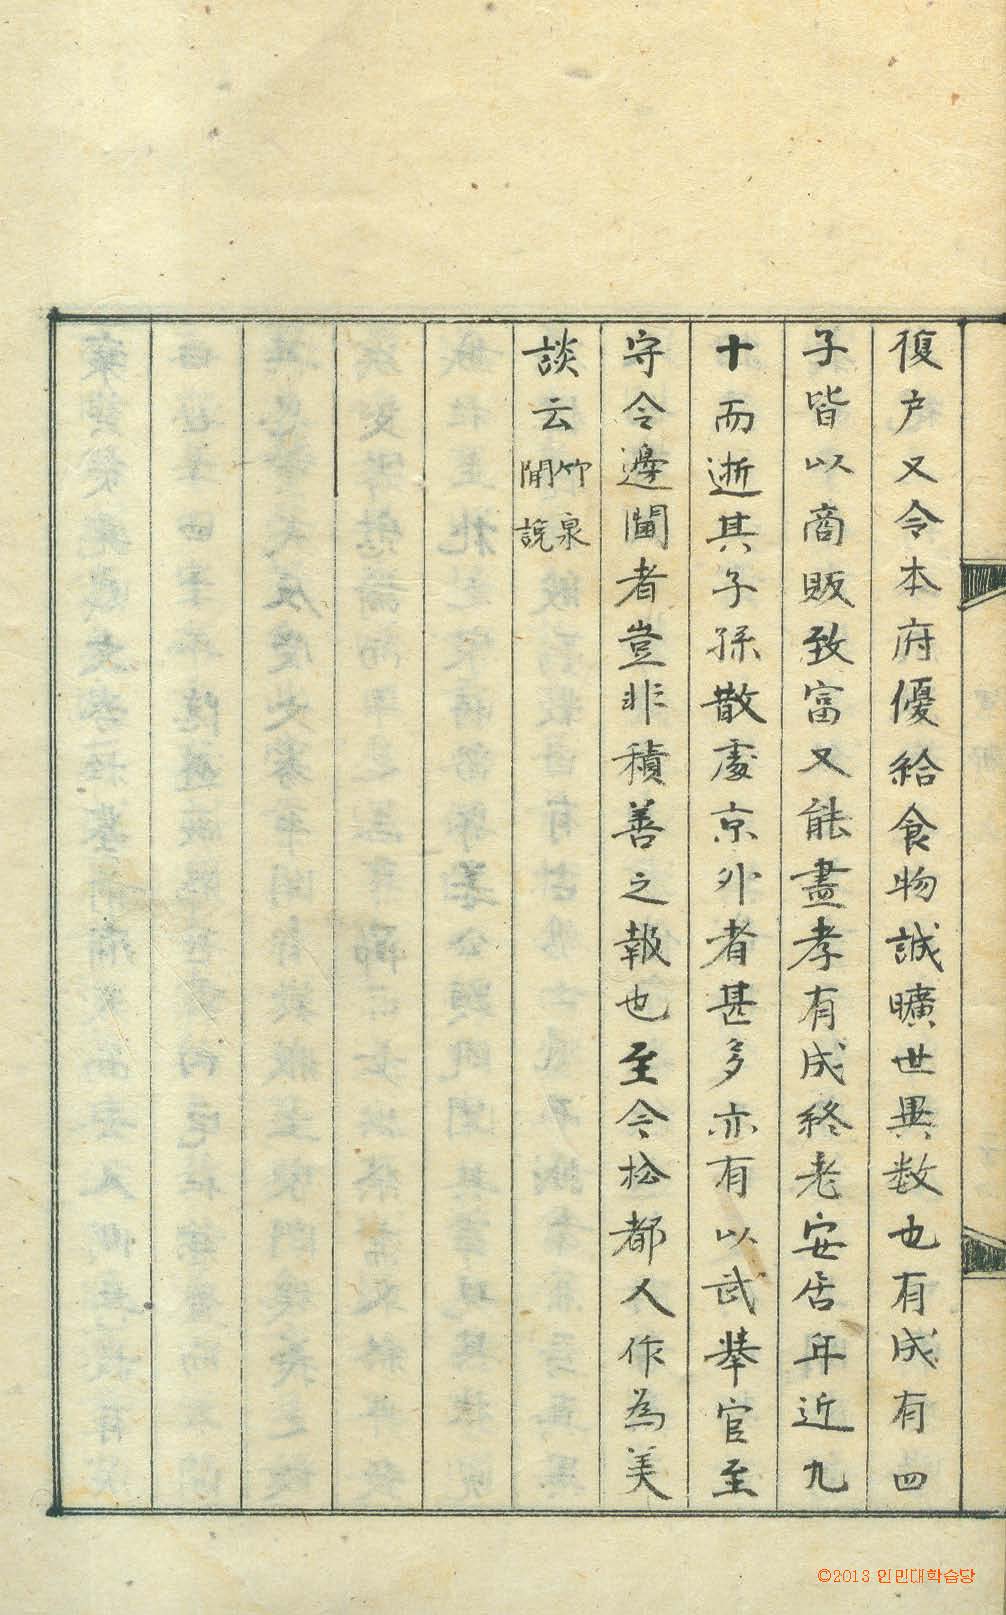 復户又令本府優給食物誠曠世異数也有成有四
子皆以商販致富又能盡孝有成終老安居年近九
十而逝其子孫散處京外者甚多亦有以武擧官至
守令邊閫者豈非積善之報也至今松都人作為美
談云竹泉
閒說
©2013 인민대학습당